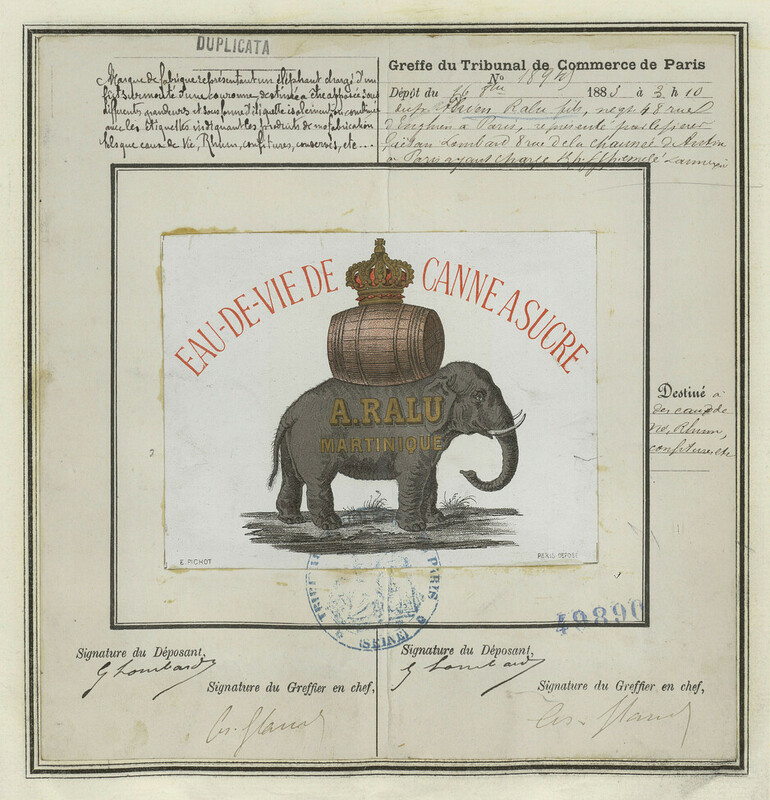 DUPLICATA
Marque de fabrique représentant un éléphant chargé d'un
fût surmonté d'une couronne, destinée à être apposée sous
différents grandeurs et sous forme d'étiquette isolément ou
avec les étiquettes indiquant les produits de ma fabrication
telsque eaux de Vie, Rhum, confitures, conserves, etc...
Greffe du Tribunal de Commerce de Paris
No
Dépôt du 16 1885 à 2 h 10
Ralu fils, negt 48 rue
d'Enghien à Paris, représenté par le sieur
Gaëtan Lombard 8 rue de la chaussée d'Antin
à Paris ayant charge
EAU-DE-VIE DE CANNE A SUCRE
A. RALU
MARTINIQUE
E. PICHOT
PARIS-DÉPOSÉ
Destiné à
des eaux de
vie, Rhum,
confitures etc
PARIS
(SEINE)
49890
Signature du Déposant,
G Lombard
Signature du Greffier en chef,
Signature du Déposant,
G Lombard
Signature du Greffier en chef,